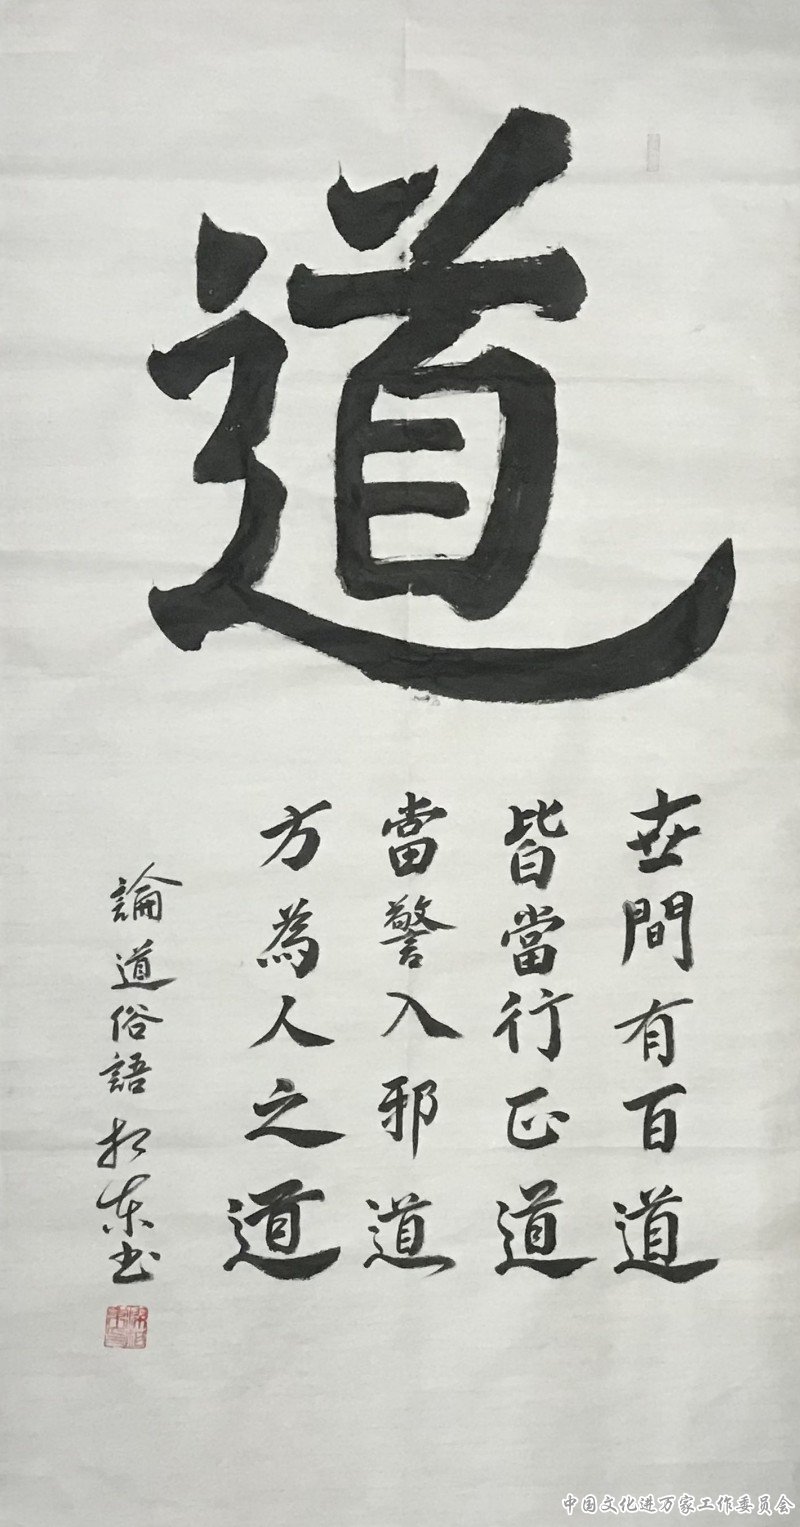 道
世間有百道
皆當行正道
當警入邪道
方為人之道
論道俗語 松東书
中国文化进万家工作委员会